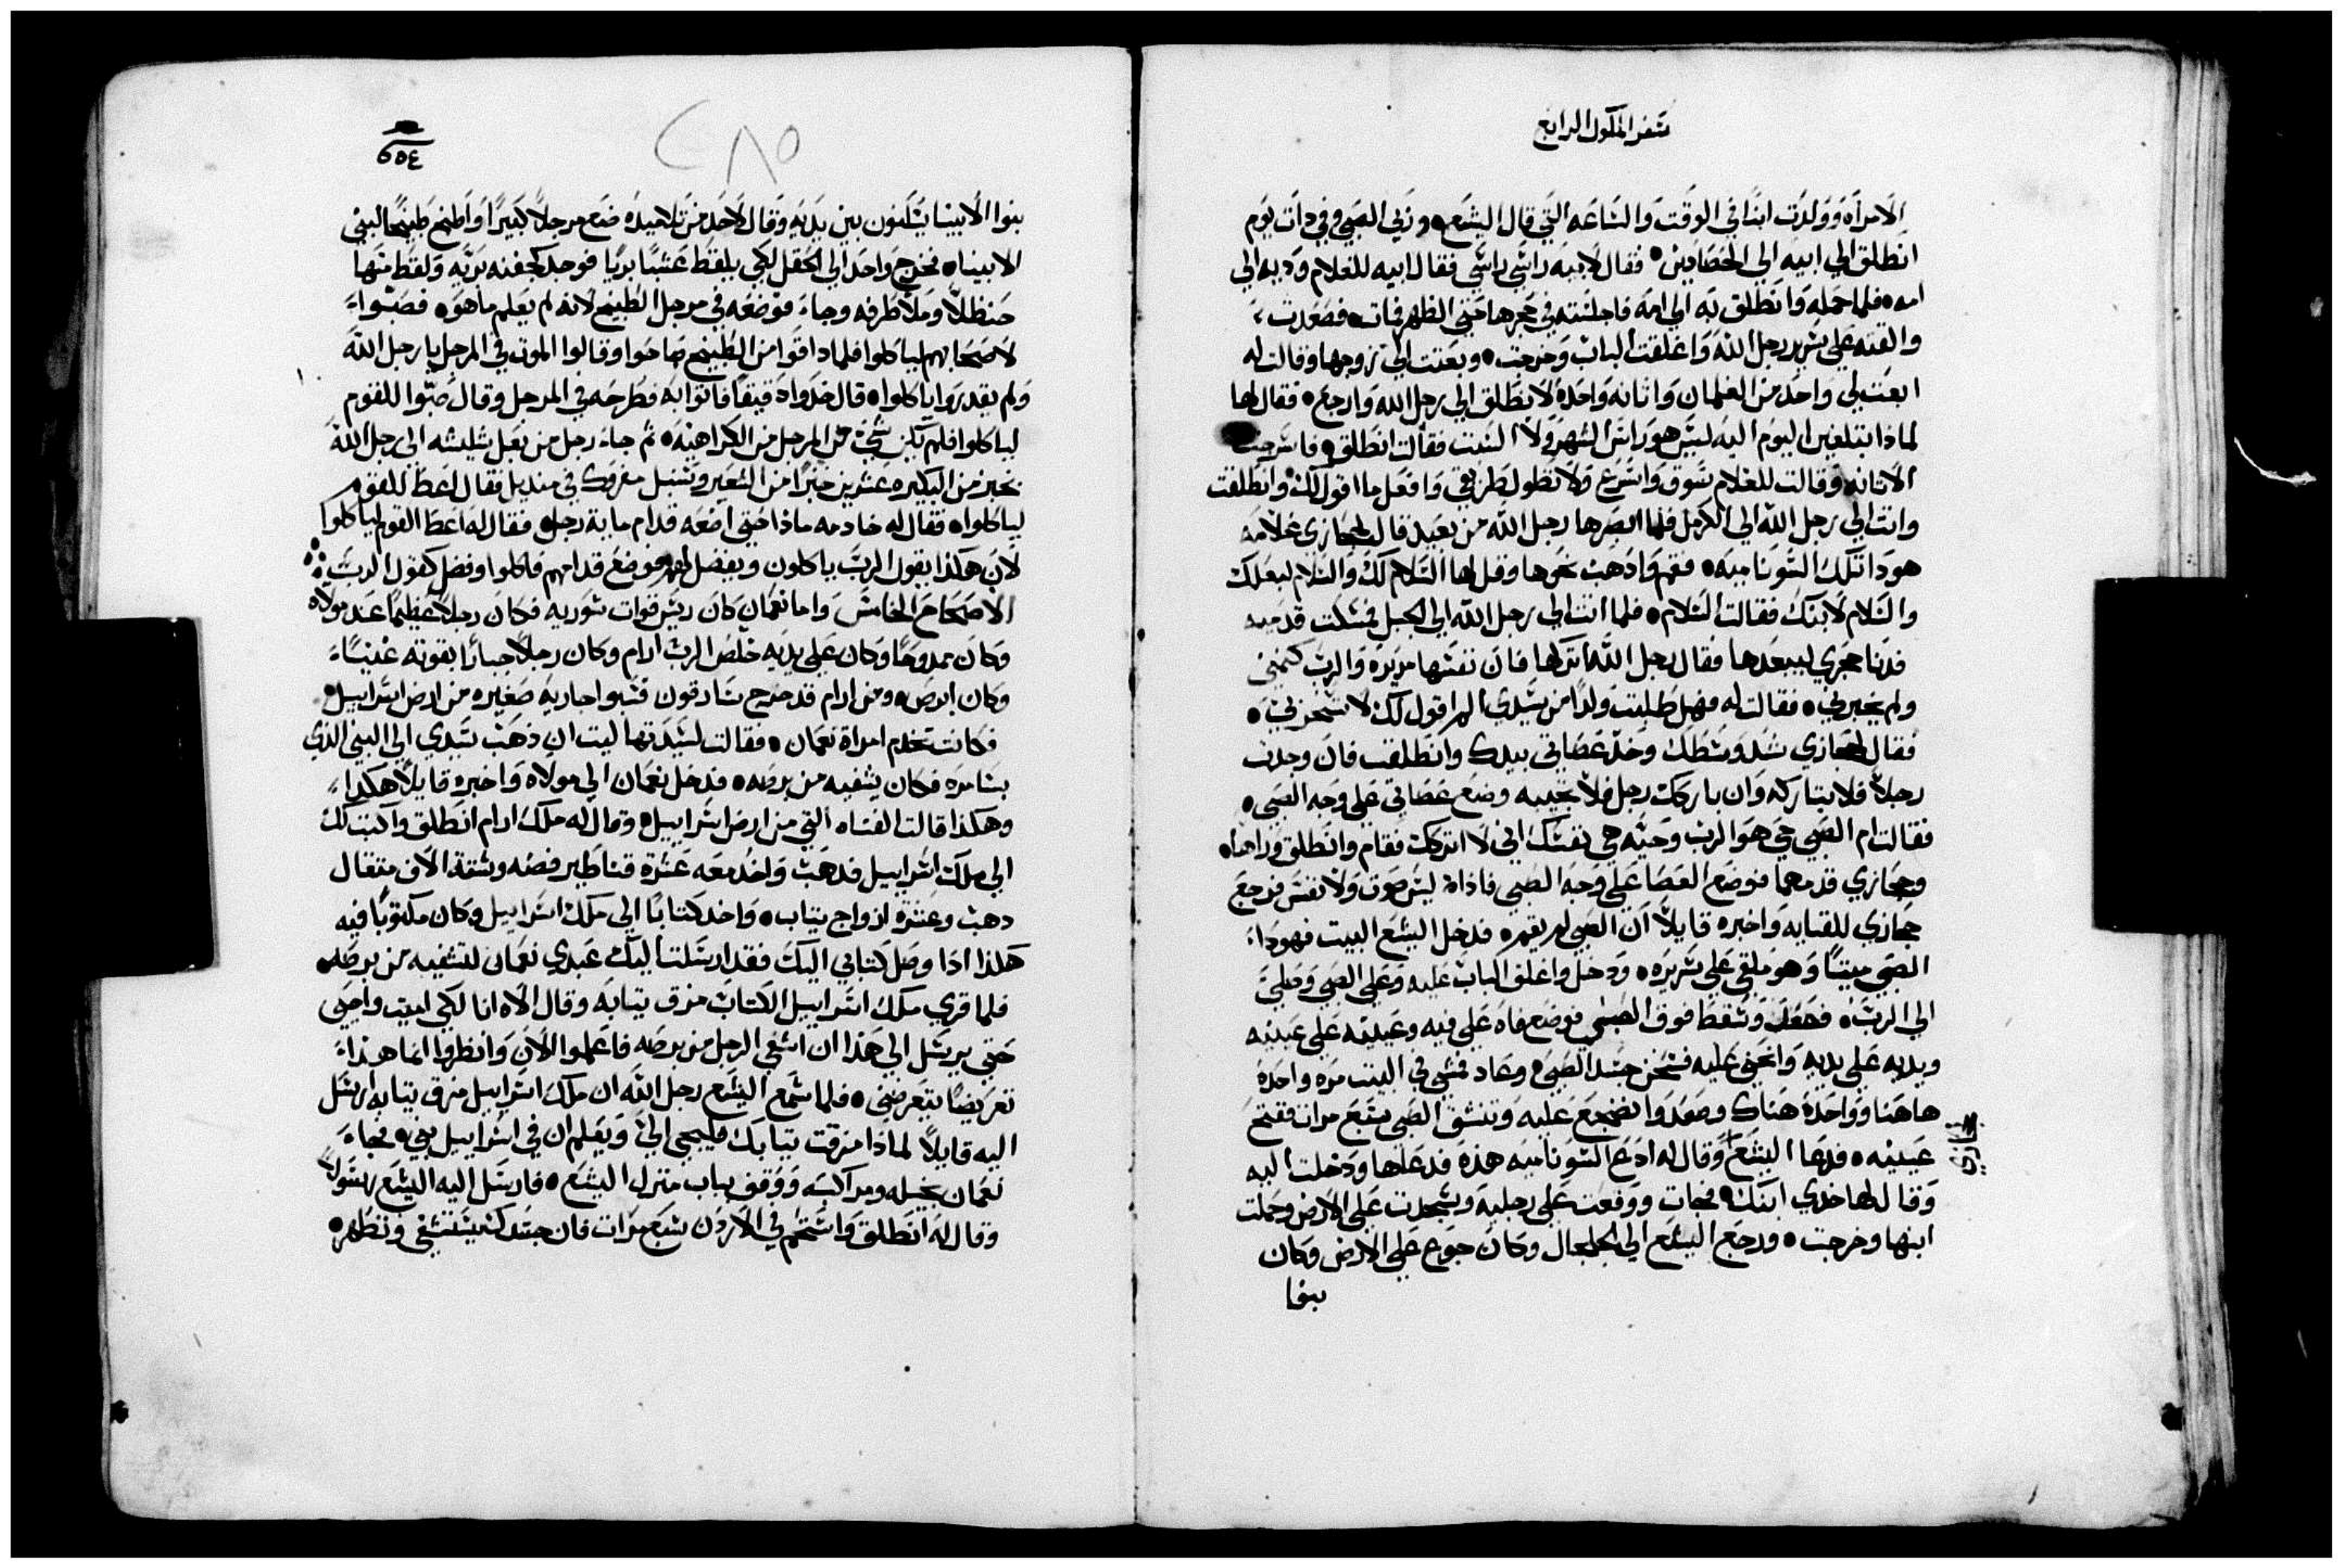 سفر الملوك الرابع
الامراه وولدت ابنًا في الوقت والساعه التي قال اليشع ٥ وربي الصبي وفي دات يوم
انطلق الي ابيه الي الحصادين ٥ فقال لابيه راسي راسي فقال ابيه للغلام وديه الي
امه ٥ فلما حمله وانطلق به الي امه فاجلسته في حجرها حتي الظهر فمات ٥ فصعدت
والقته علي سرير رجل الله واغلقت الباب وخرجت ٥ وبعتت الي زوجها وقالت له
ابعت لي واحد من الغلمان واتانه واحده لانطلق الي رجل الله وارجع ٥ فقال لها
لماذا تنطلقين اليوم اليه ليس هو راس الشهر ولا السبت فقالت انطلق ٥ فاسرجت
الاتانه وقالت للغلام سوق واسرع ولا تطول طريقي وافعل ما اقول لك وانطلقت
واتت الي رجل الله الي الكرمل فلما ابصرها رجل الله من بعيد قال لجحازي غلامه
هودا تلك السوناميه ٥ فقم وادهب نحوها وقل لها السلام لك والسلام لبعلك
والسلام لابنك فقالت السلام ٥ فلما اتت الي رجل الله الي الجبل فمسكت قدميه
فدنا جحزي ليبعدها فقال رجل الله اتركها فان نفسها مريره والرب كتمني
ولم يخبرني ٥ فقالت له فهل طلبت ولدًا من سيدي الم اقول لك لا تسخر بي ٥
فقال لجحازي شد وسطك وخذ عصاتي بيدك وانطلق فان وجدت
رجلاً فلا تباركه وان باركك رجل فلا تجيبه وضع عصاتي علي وجه الصبي ٥
فقالت ام الصبي حي هو الرب وحيه هي نفسك اني لا اتركك فقام وانطلق وراها ٥
وجحازي قدمهما فوضع العصا علي وجه الصبي فاذا ليس صوت ولا نفس فرجع
جحازي للقايه واخبره قايلاً ان الصبي لم يقم ٥ فدخل اليشع البيت فهودا
الصبي ميتًا وهو ملقي علي سريره ٥ ودخل واغلق الباب عليه وعلي الصبي وصلي
الي الرب ٥ فصعد وسقط فوق الصبي فوضع فاه علي فيه وعينيه علي عينيه
ويديه علي يديه وانحني عليه فسخن جسد الصبي ٥ وعاد فمشي في البيت مره واحده
هاهنا وواحده هناك وصعد واضجع عليه وتنسق الصبي سبع مرات ففتح
عينيه ٥ فدعا اليشع وقال له ادع السوناميه هذه فدعاها ودخلت اليه
وقال لها خدي ابنك ٥ فجات ووقعت علي رجليه وسجدت علي الارض وحملت
ابنها وخرجت ٥ ورجع اليشع الي الجلجال وكان جوع علي الارض وكان
بنوا
٢٨٥
بنوا الانبيا يسكنون بين يديه وقال لاحد من تلاميذه ضع مرجلاً كبيرًا واطبخ طبيخًا لبني
الانبيا ٥ فخرج واحد الي الحقل لكي يلقط عشبًا بريًا فوجد كجفنه بريه ولقط منها
حنظلاً وملا طرفه وجا فوضعه في مرجل الطبيخ لانه لم يعلم ما هو ٥ فصبوا
لاصحابهم لياكلوا فلما داقوا من الطبيخ صاحوا وقالوا الموت في المرجل يا رجل الله
ولم يقدروا ياكلوا ٥ قال خذوا دقيقًا فاتوا به فطرحه في المرجل وقال صبوا للقوم
لياكلوا فلم يكن شي في المرجل من الكراهيه ٥ ثم جا رجل من بعل شليشه الي رجل الله
بخبز من البكيره عشرين خبزًا من الشعير وسنبل مفروك في منديل فقال اعط للقوم
لياكلوا ٥ فقال له خادمه ماذا حتي اضعه قدام مايه رجل ٥ فقال له اعط القوم لياكلوا
لان هكذا يقول الرب ياكلون ويفضل لهم فوضع قدامهم فاكلوا وفضل كقول الرب
الاصحاح الخامس واما نعمان كان ريس قوات سوريه فكان رجلاً عظيمًا عند مولاه
وكان ممدوحًا وكان علي يديه خلص الرب ارام وكان رجلاً جبارًا بقوته غنيًا
وكان ابرص ٥ ومن ارام قد خرج سارقون فسبوا جاريه صغيره من ارض اسراييل ٥
فكانت تخدم امراة نعمان ٥ فقالت لسيدتها ليت ان ذهب سيدي الي النبي الذي
بسامره فكان يشفيه من برصه ٥ فدخل نعمان الي مولاه واخبره قايلاً هكدا
وهكذا قالت الفتاه التي من ارض اسراييل ٥ وقال له ملك ارام انطلق واكتب لك
الي ملك اسراييل فدهب واخد معه عشرة قناطير فضه وستة الاف متقال
دهب وعشرة ازواج تياب ٥ واخد كتابًا الي ملك اسراييل وكان مكتوبًا فيه
هكذا ادا وصل كتابي اليك فقد ارسلت اليك عبدي نعمان لتشفيه من برصه
فلما قري ملك اسراييل الكتاب مزق تيابه وقال الاه انا لكي اميت واحيي
حتي يرسل الي هذا ان اشفي الرجل من برصه فاعلموا الان وانظروا انما هذا
تعريضًا يتعرضني ٥ فلما سمع اليشع رجل الله ان ملك اسراييل مزق تيابه ارسل
اليه قايلاً لماذا مزقت تيابك فليجي الي ويعلم ان في اسراييل نبي ٥ فجا
نعمان بخيله ومراكبه ووقف بباب منزل اليشع ٥ فارسل اليه اليشع رسولاً
وقال له انطلق واستحم في الاردن سبع مرات فان جسدك يستشفي وتطهر ٥